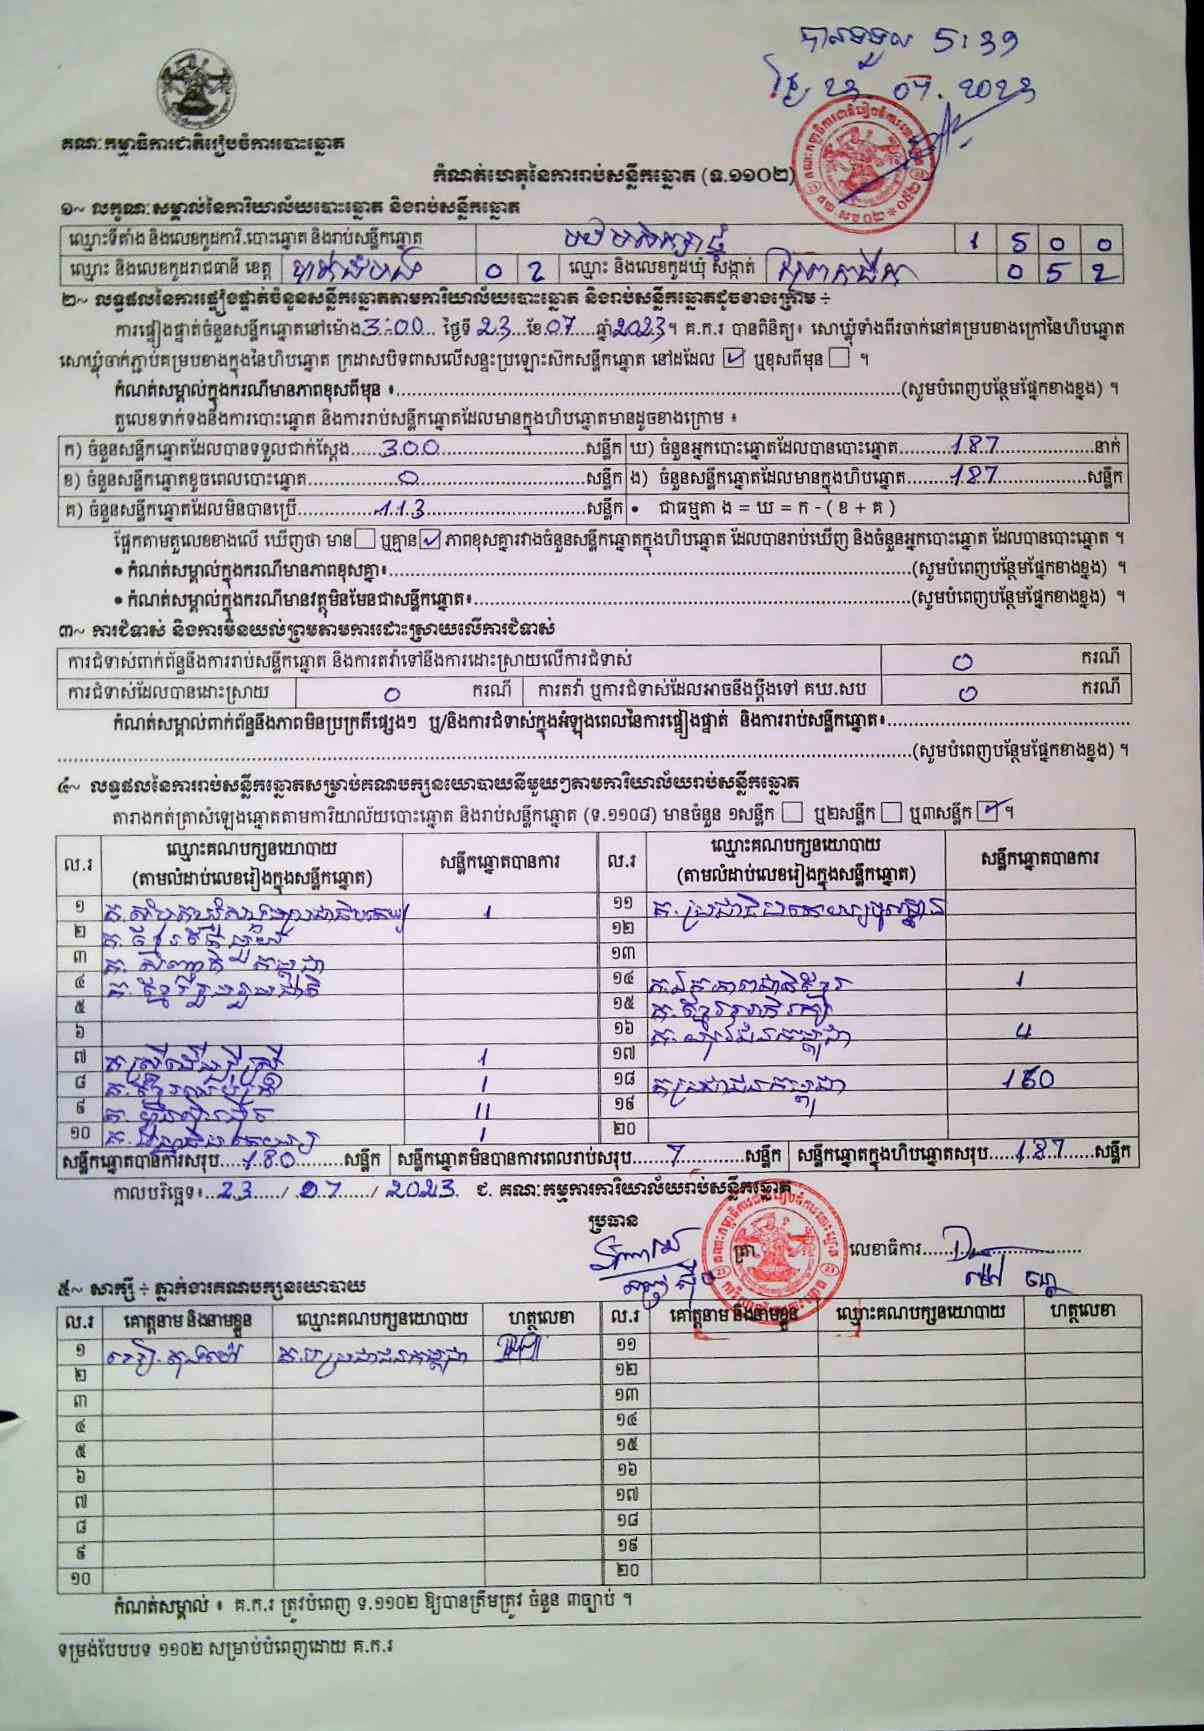 បានទទួល 5:39
ថ្ងៃ 23. 07. 2023
គណៈកម្មាធិការជាតិរៀបចំការបោះឆ្នោត
កំណត់ហេតុនៃការរាប់សន្លឹកឆ្នោត (ទ.១១០២)
១~ លក្ខណៈសម្គាល់នៃការិយាល័យបោះឆ្នោត និងរាប់សន្លឹកឆ្នោត
ឈ្មោះទីតាំង និងលេខកូដការិ.បោះឆ្នោត និងរាប់សន្លឹកឆ្នោត 1 5 0 0
ឈ្មោះ និងលេខកូដរាជធានី ខេត្ត បាត់ដំបង 0 2 ឈ្មោះ និងលេខកូដឃុំ សង្កាត់ 0 5 2
២~ លទ្ធផលនៃការផ្ទៀងផ្ទាត់ចំនួនសន្លឹកឆ្នោតតាមការិយាល័យបោះឆ្នោត និងរាប់សន្លឹកឆ្នោតដូចខាងក្រោម ÷
ការផ្ទៀងផ្ទាត់ចំនួនសន្លឹកឆ្នោតនៅម៉ោង 3:00 ថ្ងៃទី 23 ខែ 07 ឆ្នាំ 2023 ។ គ.ក.រ បានពិនិត្យ៖ សោឃ្លុំទាំងពីរចាក់នៅគម្របខាងក្រៅនៃហិបឆ្នោត
សោឃ្លុំចាក់ភ្ជាប់គម្របខាងក្នុងនៃហិបឆ្នោត ក្រដាសបិទពាសលើសន្ទះប្រឡោះស៊កសន្លឹកឆ្នោត នៅដដែល ☑ ឬខុសពីមុន ☐ ។
កំណត់សម្គាល់ក្នុងករណីមានភាពខុសពីមុន ៖ (សូមបំពេញបន្ថែមផ្នែកខាងខ្នង) ។
តួលេខទាក់ទងនឹងការបោះឆ្នោត និងការរាប់សន្លឹកឆ្នោតដែលមានក្នុងហិបឆ្នោតមានដូចខាងក្រោម ៖
ក) ចំនួនសន្លឹកឆ្នោតដែលបានទទួលជាក់ស្តែង 300 សន្លឹក ឃ) ចំនួនអ្នកបោះឆ្នោតដែលបានបោះឆ្នោត 187 នាក់
ខ) ចំនួនសន្លឹកឆ្នោតខូចពេលបោះឆ្នោត 0 សន្លឹក ង) ចំនួនសន្លឹកឆ្នោតដែលមានក្នុងហិបឆ្នោត 187 សន្លឹក
គ) ចំនួនសន្លឹកឆ្នោតដែលមិនបានប្រើ 113 សន្លឹក • ជាធម្មតា ង = ឃ = ក - ( ខ + គ )
ផ្អែកតាមតួលេខខាងលើ ឃើញថា មាន ☐ ឬគ្មាន ☑ ភាពខុសគ្នារវាងចំនួនសន្លឹកឆ្នោតក្នុងហិបឆ្នោត ដែលបានរាប់ឃើញ និងចំនួនអ្នកបោះឆ្នោត ដែលបានបោះឆ្នោត ។
• កំណត់សម្គាល់ក្នុងករណីមានភាពខុសគ្នា៖ (សូមបំពេញបន្ថែមផ្នែកខាងខ្នង) ។
• កំណត់សម្គាល់ក្នុងករណីមានវត្ថុមិនមែនជាសន្លឹកឆ្នោត៖ (សូមបំពេញបន្ថែមផ្នែកខាងខ្នង) ។
៣~ ការជំទាស់ និងការមិនយល់ព្រមតាមការដោះស្រាយលើការជំទាស់
ការជំទាស់ពាក់ព័ន្ធនឹងការរាប់សន្លឹកឆ្នោត និងការតវ៉ាទៅនឹងការដោះស្រាយលើការជំទាស់ 0 ករណី
ការជំទាស់ដែលបានដោះស្រាយ 0 ករណី ការតវ៉ា ឬការជំទាស់ដែលអាចនឹងប្តឹងទៅ គឃ.សប 0 ករណី
កំណត់សម្គាល់ពាក់ព័ន្ធនឹងភាពមិនប្រក្រតីផ្សេងៗ ឬ/និងការជំទាស់ក្នុងអំឡុងពេលនៃការផ្ទៀងផ្ទាត់ និងការរាប់សន្លឹកឆ្នោត៖
(សូមបំពេញបន្ថែមផ្នែកខាងខ្នង) ។
៤~ លទ្ធផលនៃការរាប់សន្លឹកឆ្នោតសម្រាប់គណបក្សនយោបាយនីមួយៗតាមការិយាល័យរាប់សន្លឹកឆ្នោត
តារាងកត់ត្រាសំឡេងឆ្នោតតាមការិយាល័យបោះឆ្នោត និងរាប់សន្លឹកឆ្នោត (ទ.១១០៨) មានចំនួន ១សន្លឹក ☐ ឬ២សន្លឹក ☐ ឬ៣សន្លឹក ☑ ។
ល.រ ឈ្មោះគណបក្សនយោបាយ (តាមលំដាប់លេខរៀងក្នុងសន្លឹកឆ្នោត) សន្លឹកឆ្នោតបានការ ល.រ ឈ្មោះគណបក្សនយោបាយ (តាមលំដាប់លេខរៀងក្នុងសន្លឹកឆ្នោត) សន្លឹកឆ្នោតបានការ
១ 1 ១១
២ ១២
៣ ១៣
៤ ១៤ 1
៥ ១៥
៦ ១៦ 4
៧ 1 ១៧
៨ 1 ១៨ គ.ប្រជាជនកម្ពុជា 160
៩ 11 ១៩
១០ 1 ២០
សន្លឹកឆ្នោតបានការសរុប 180 សន្លឹក សន្លឹកឆ្នោតមិនបានការពេលរាប់សរុប 7 សន្លឹក សន្លឹកឆ្នោតក្នុងហិបឆ្នោតសរុប 187 សន្លឹក
កាលបរិច្ឆេទ៖ 23 / 07 / 2023 ជ. គណៈកម្មការការិយាល័យរាប់សន្លឹកឆ្នោត
ប្រធាន
ត្រា លេខាធិការ
៥~ សាក្សី ÷ ភ្នាក់ងារគណបក្សនយោបាយ
ល.រ គោត្តនាម និងនាមខ្លួន ឈ្មោះគណបក្សនយោបាយ ហត្ថលេខា ល.រ គោត្តនាម និងនាមខ្លួន ឈ្មោះគណបក្សនយោបាយ ហត្ថលេខា
១ ១១
២ ១២
៣ ១៣
៤ ១៤
៥ ១៥
៦ ១៦
៧ ១៧
៨ ១៨
៩ ១៩
១០ ២០
កំណត់សម្គាល់ ៖ គ.ក.រ ត្រូវបំពេញ ទ.១១០២ ឱ្យបានត្រឹមត្រូវ ចំនួន ៣ច្បាប់ ។
ទម្រង់បែបបទ ១១០២ សម្រាប់បំពេញដោយ គ.ក.រ